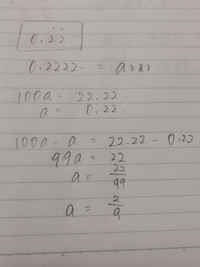 0.2̇2̇
0.2222·· = aとおく
100a = 22.22··
a = 0.22··
100a - a = 22.22 - 0.22
99a = 22
a = 22/99
a = 2/9